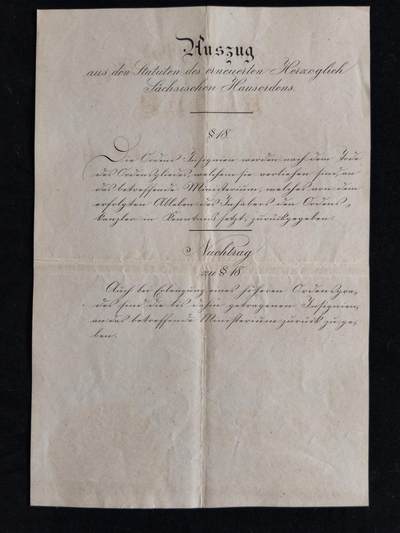 Auszug
aus den Statuten des erneuerten Herzoglich
Sächsischen Hausordens.
§ 18.
Die Ordens Insignien werden nach dem Tode
des Ordensgliedes, welchem sie verliehen sind, an
das betreffende Ministerium, welches von dem
erfolgten Ableben des Inhabers den Ordens-
kanzler in Kenntniß setzt, zurückgegeben.
Nachtrag
zu § 18
Auch bei Erlangung eines höheren Ordensgra-
des sind die bis dahin getragenen Insignien,
an das betreffende Ministerium zurück zu ge-
ben.